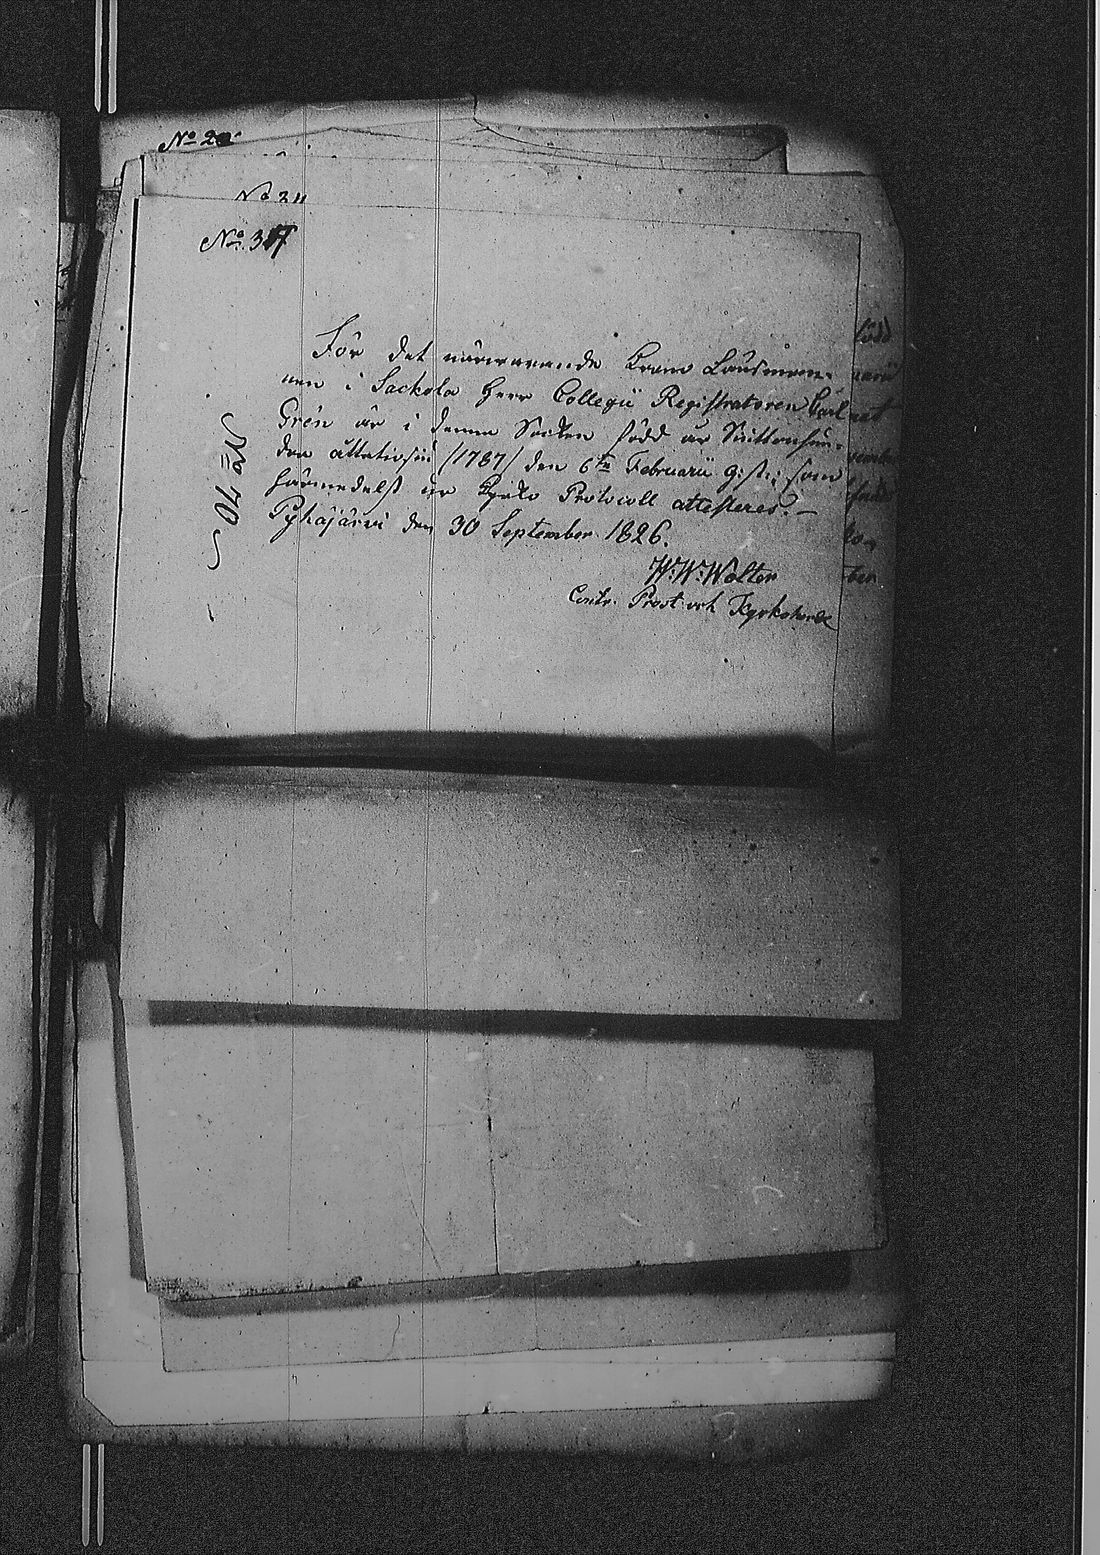 No 20
No 311
No 317
No 70
För det närwarande Krono Länsman-
nen i Sackola Herr Collegii Registratoren Carl
Grén är i denna Socken född år Sjuttonhun-
dra åttatiosju /1787/ den 6te Februarii
härmedelst ur Kyrko Protocoll attesteres.
Pyhäjärvi den 30 September 1826.
W: W: Walter
Contr. Prost och Kyrkoherde
född